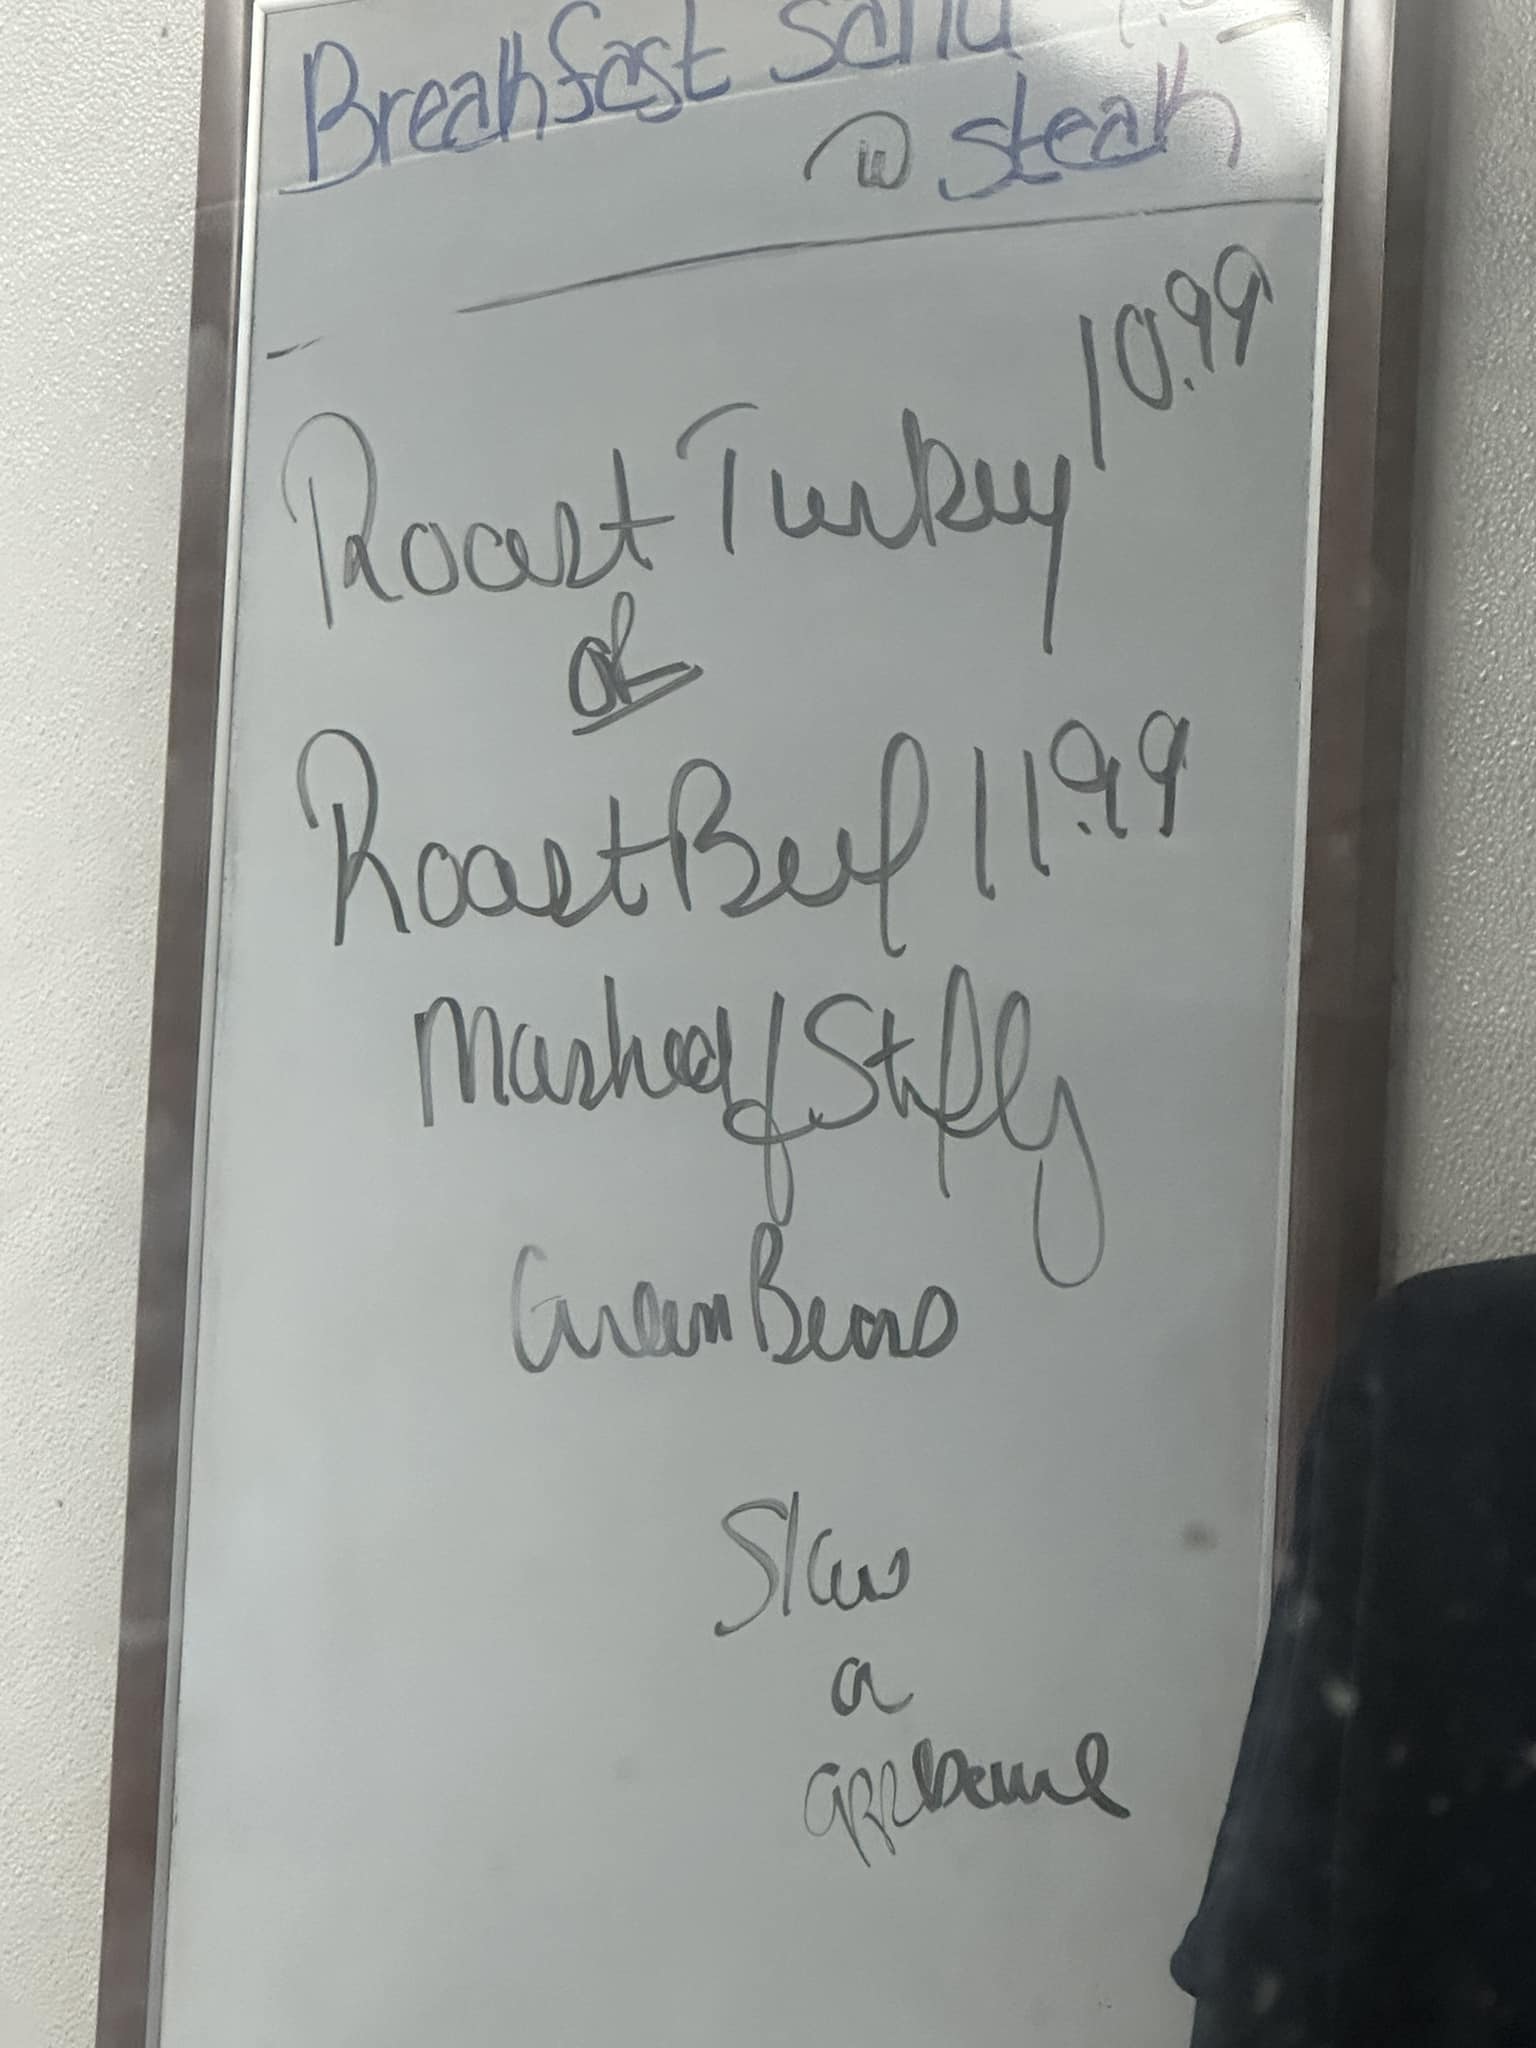 Breakfast Sand
w steak
Roast Turkey 10.99
or
Roast Beef 11.99
Mashed / Stuffing
Green Beans
Slaw
or
applesauce